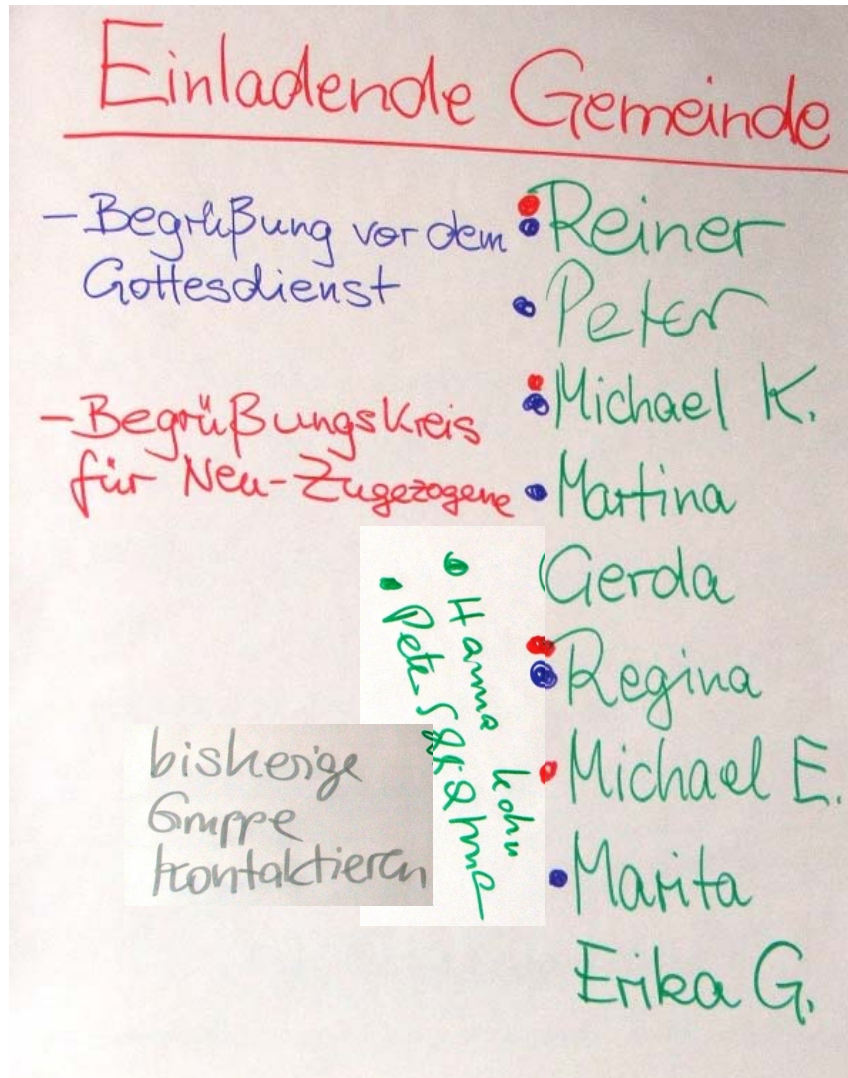 Einladende Gemeinde
– Begrüßung vor dem
Gottesdienst
– Begrüßungskreis
für Neu-Zugezogene
Reiner
Peter
Michael K.
Martina
Gerda
Regina
Michael E.
Marita
Erika G.
• Hanna Kohn
• Peter
bisherige
Gruppe
kontaktieren